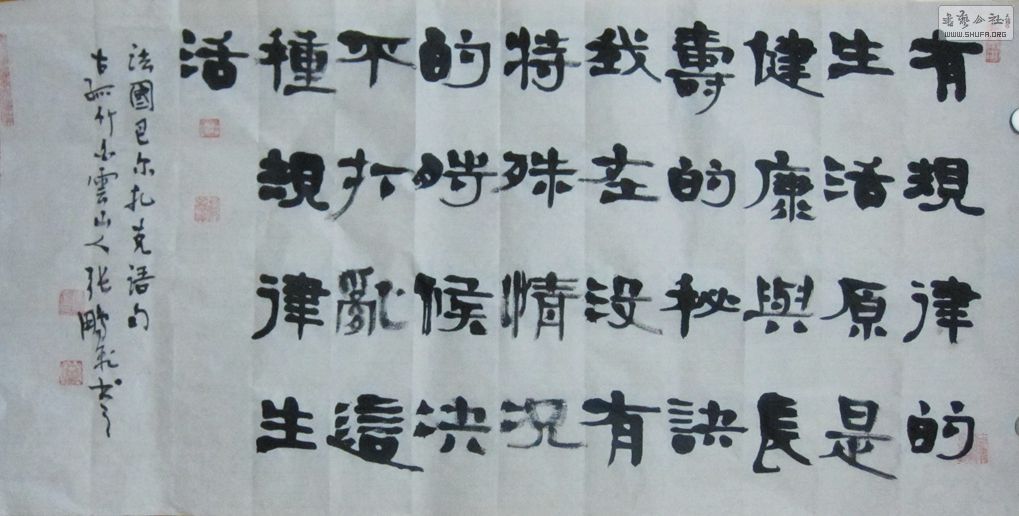 有規律的
生活原是
健康與長
壽的秘訣
我在沒有
特殊情況
的時候決
不打亂這
種規律生
活
法國巴尔扎克語句
古孤竹白雲山人张鵬书之
書藝公社
WWW.SHUFA.ORG